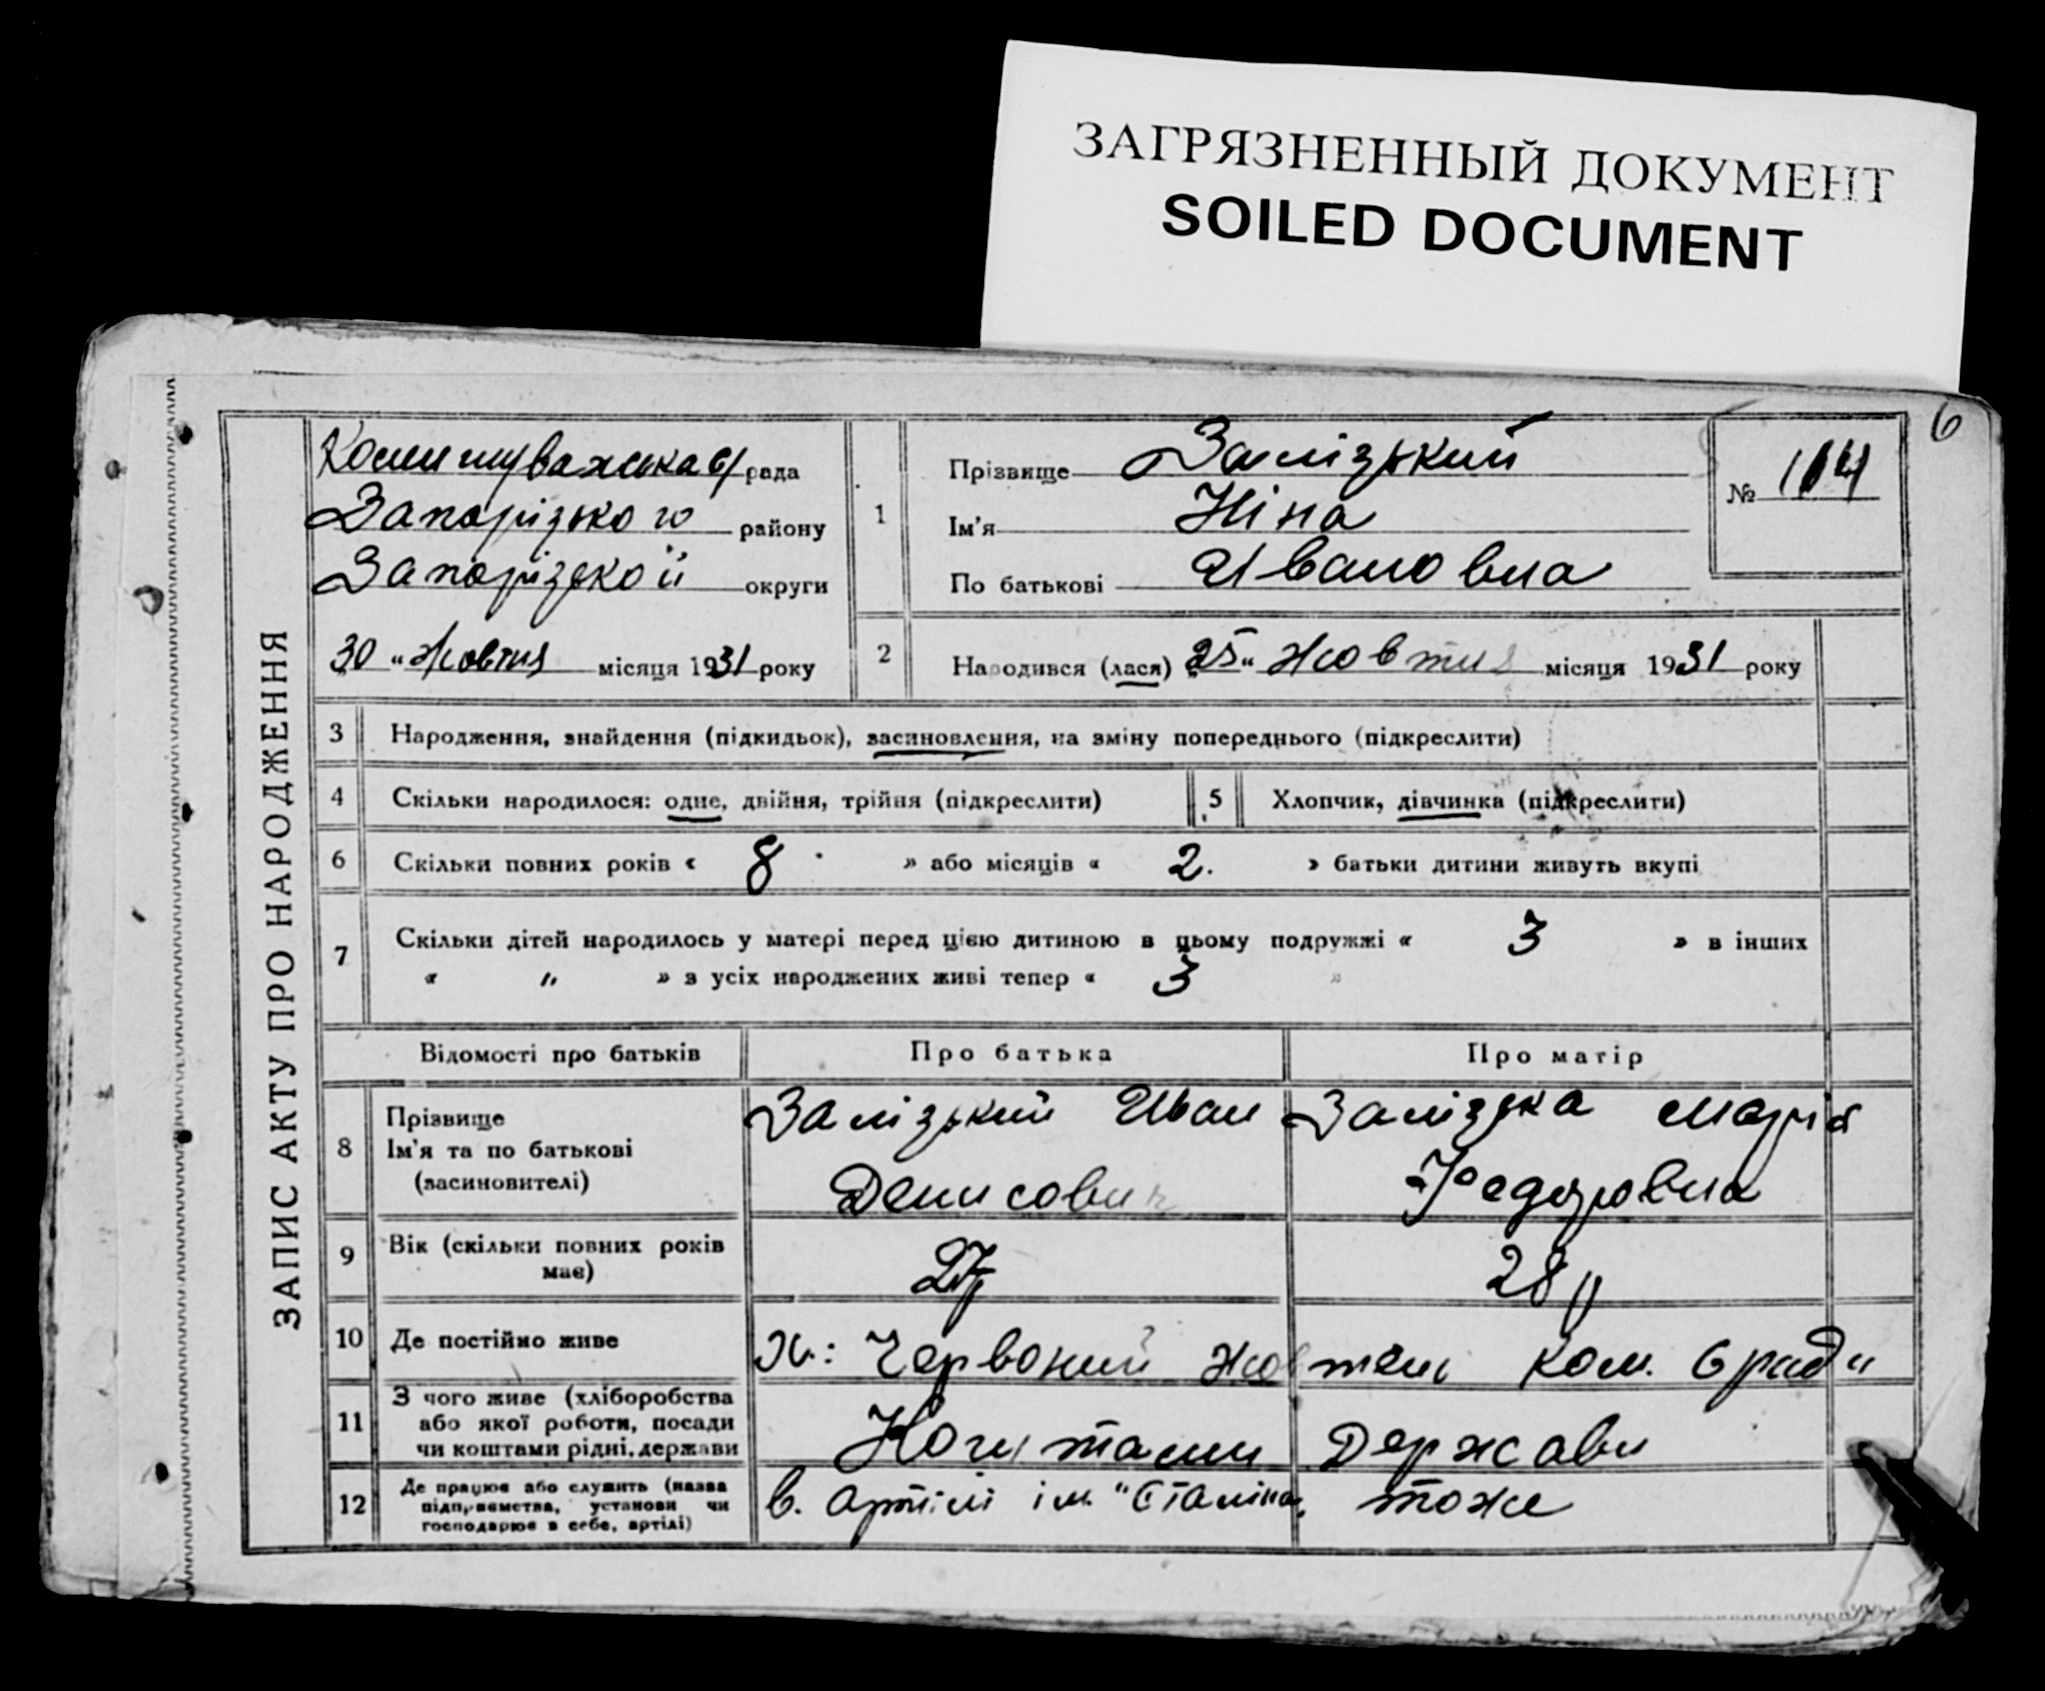 ЗАГРЯЗНЕННЫЙ ДОКУМЕНТ
SOILED DOCUMENT
6
ЗАПИС АКТУ ПРО НАРОДЖЕННЯ
Комишуваська с/рада
Запорізького району
Запорізької округи
30 "Жовтня місяця 1931 року
1
Прізвище Залізький
Ім'я Ніна
По батькові Ивановна
№ 104
2 Народився (лася) 25 " Жовтня місяця 1931 року
3 Народження, знайдення (підкидьок), засиновлення, на зміну попереднього (підкреслити)
4 Скільки народилося: одне, двійня, трійня (підкреслити) 5 Хлопчик, дівчинка (підкреслити)
6 Скільки повних років « 8 » або місяців « 2. » батьки дитини живуть вкупі
7 Скільки дітей народилось у матері перед цією дитиною в цьому подружжі « 3 » в інших
« " » з усіх народжених живі тепер « 3 »
Відомості про батьків Про батька Про матір
8 Прізвище
Ім'я та по батькові
(засиновителі)
Залізький Иван
Денисович
Залізька Марія
Федоровна
9 Вік (скільки повних років
має)
27
28 р
10 Де постійно живе Х: Червоний Жовтень Ком. с ради
11 З чого живе (хліборобства
або якої роботи, посади
чи коштами рідні, держави
Коштами Держави
12 Де працює або служить (назва
підприємства, установи чи
господарює в себе, артілі)
в. артілі ім. "Сталіна" тоже